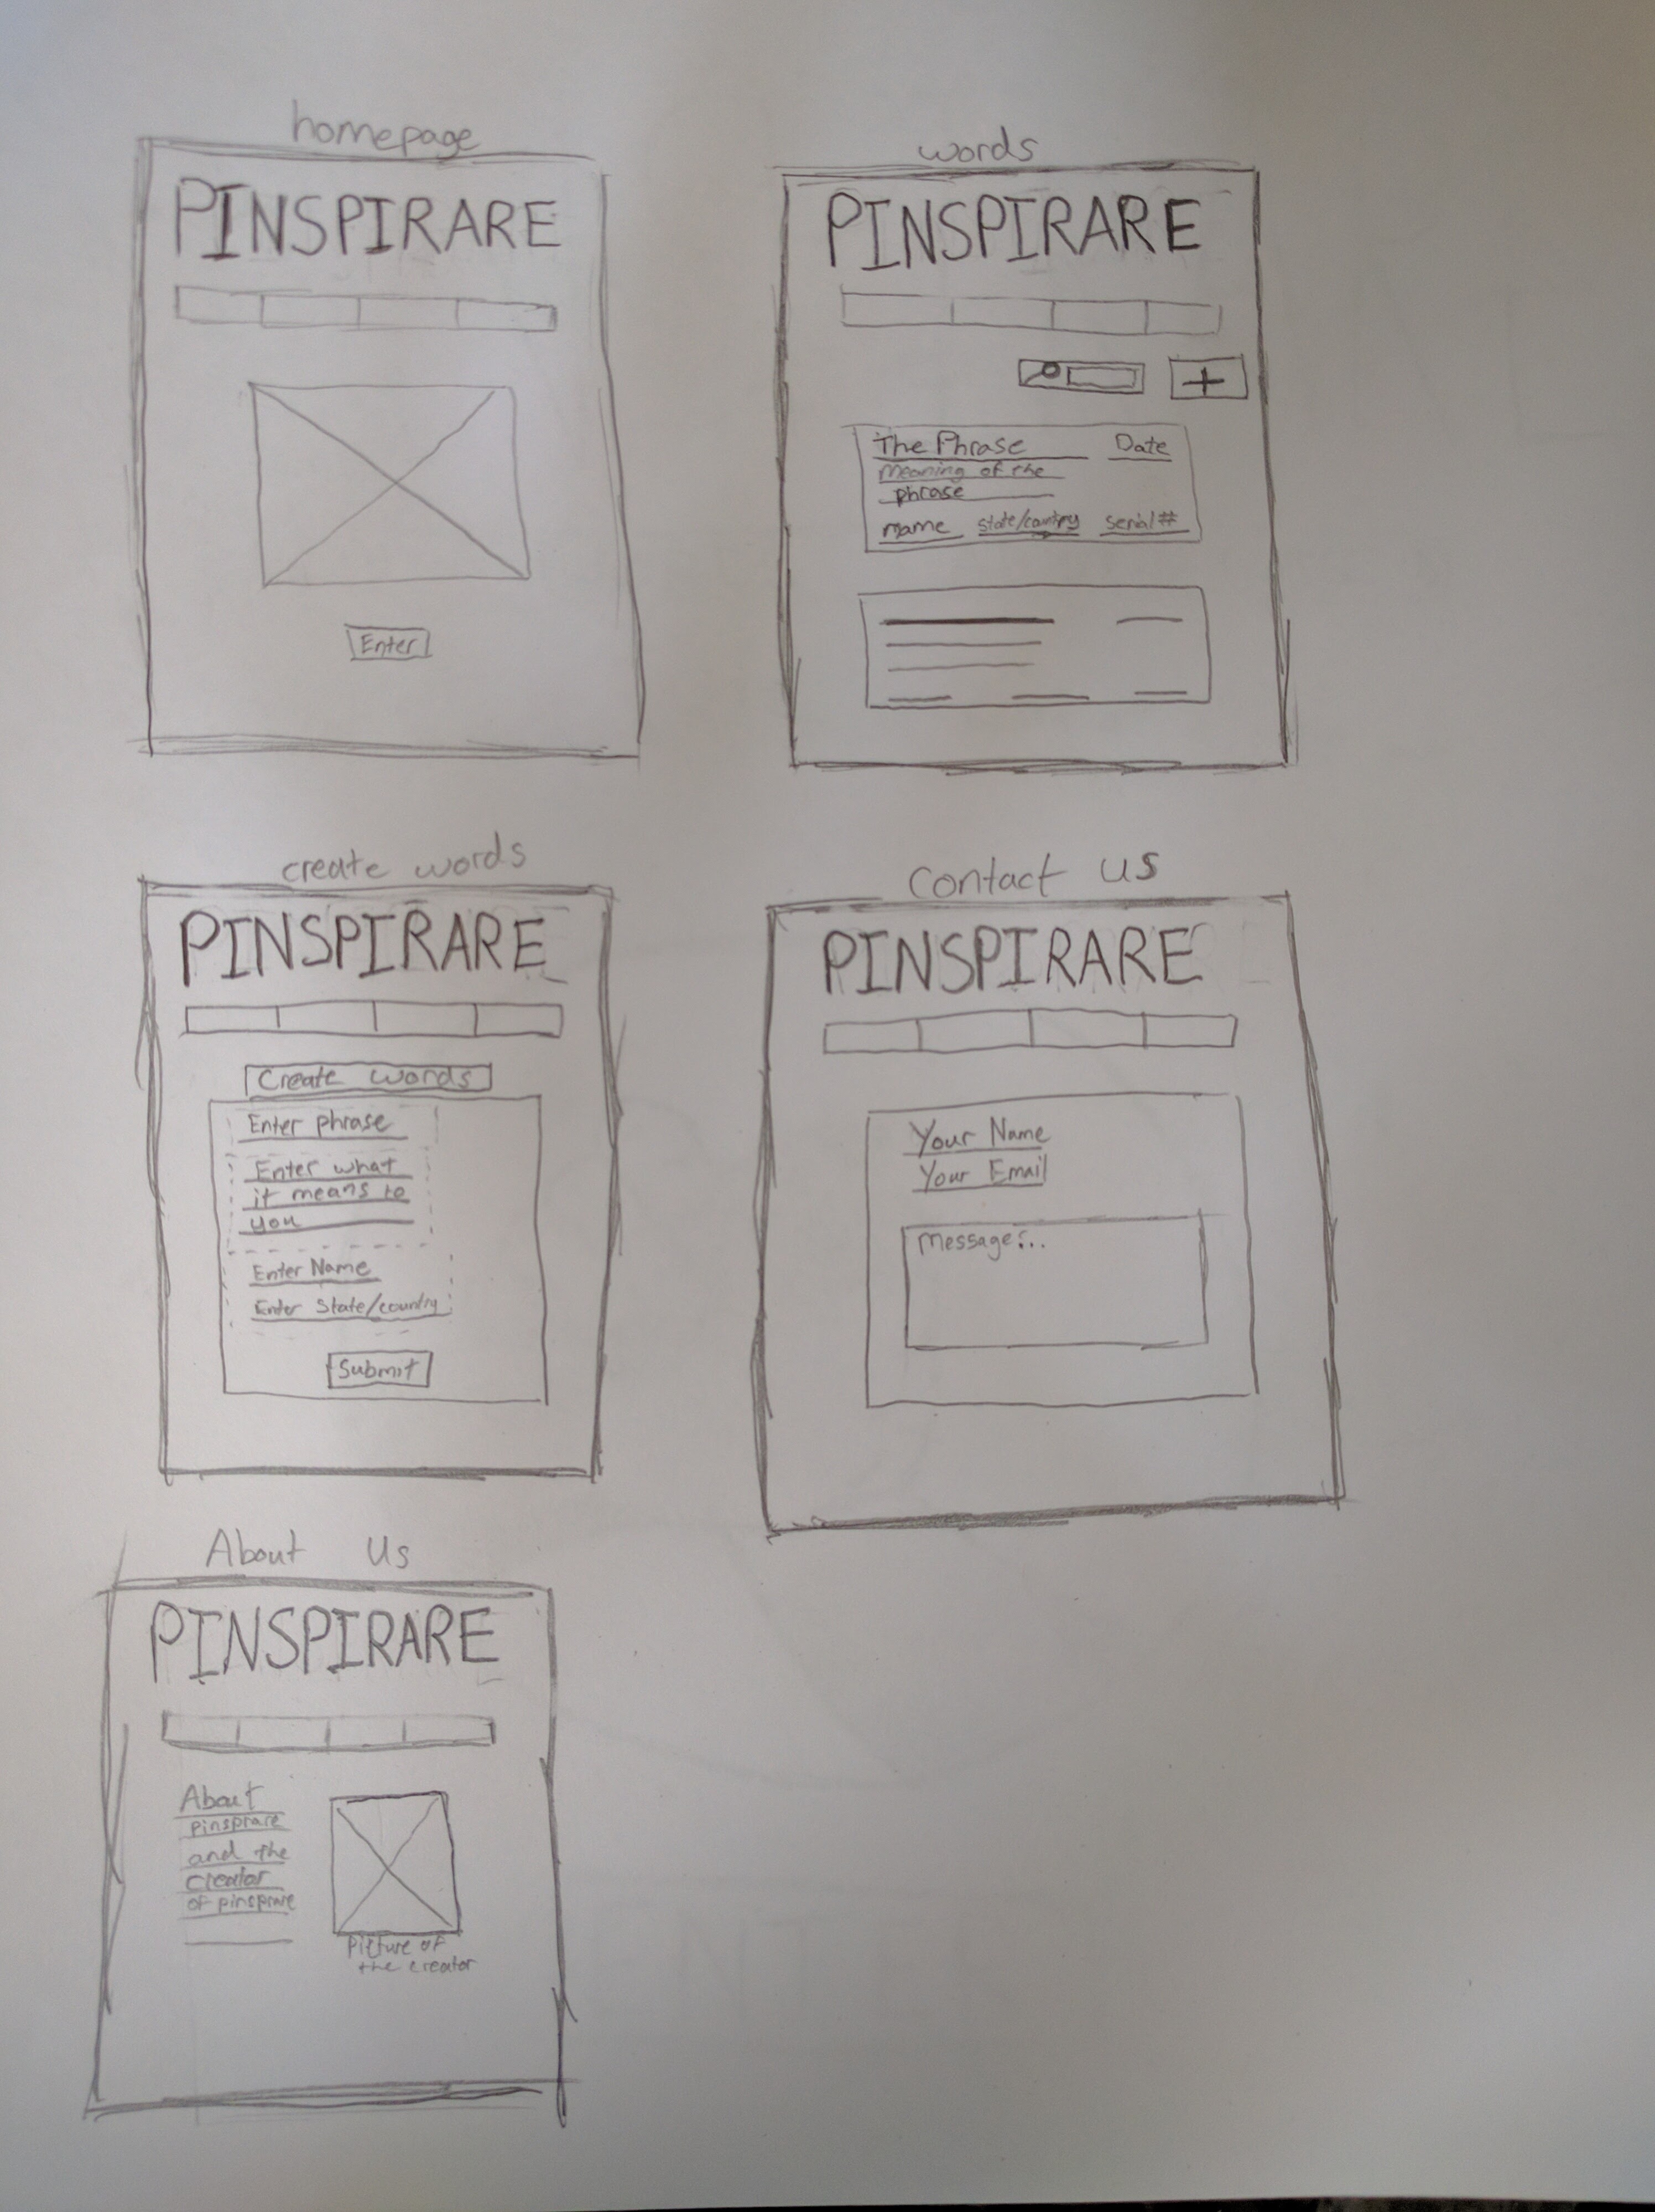 homepage
PINSPIRARE
Enter
words
PINSPIRARE
+
The Phrase Date
Meaning of the
phrase
name state/country serial #
create words
PINSPIRARE
Create words
Enter phrase
Enter what
it means to
you
Enter Name
Enter State/country
Submit
Contact us
PINSPIRARE
Your Name
Your Email
Message:..
About Us
PINSPIRARE
About
pinsprare
and the
creator
of pinsprare
Picture of
the creator